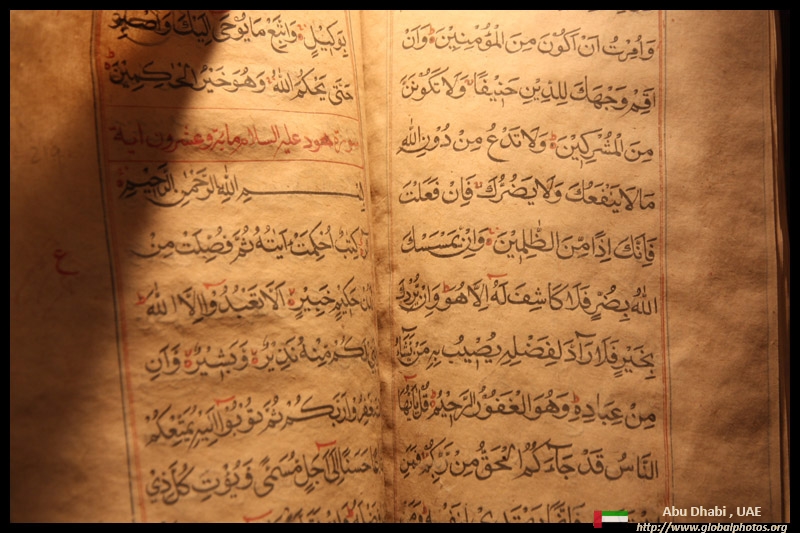 وَاُمِرْتُ اَنْ اَكُوْنَ مِنَ الْمُؤْمِنِيْنَ وَاَنْ
اَقِمْ وَجْهَكَ لِلدِّيْنِ حَنِيْفًا وَلَا تَكُوْنَنَّ
مِنَ الْمُشْرِكِيْنَ وَلَا تَدْعُ مِنْ دُوْنِ اللّٰهِ
مَا لَا يَنْفَعُكَ وَلَا يَضُرُّكَ فَاِنْ فَعَلْتَ
فَاِنَّكَ اِذًا مِّنَ الظّٰلِمِيْنَ وَاِنْ يَمْسَسْكَ
اللّٰهُ بِضُرٍّ فَلَا كَاشِفَ لَهٗ اِلَّا هُوَ وَاِنْ يُرِدْكَ
بِخَيْرٍ فَلَا رَآدَّ لِفَضْلِهٖ يُصِيْبُ بِهٖ مَنْ يَّشَآءُ
مِنْ عِبَادِهٖ وَهُوَ الْغَفُوْرُ الرَّحِيْمُ قُلْ يٰٓاَيُّهَا
النَّاسُ قَدْ جَآءَكُمُ الْحَقُّ مِنْ رَّبِّكُمْ فَمَنِ
بِوَكِيْلٍ وَاتَّبِعْ مَا يُوْحٰٓى اِلَيْكَ وَاصْبِرْ
حَتّٰى يَحْكُمَ اللّٰهُ وَهُوَ خَيْرُ الْحٰكِمِيْنَ
سورة هود عليه السلام مائة وعشرون اية
بِسْمِ اللّٰهِ الرَّحْمٰنِ الرَّحِيْمِ
كِتٰبٌ اُحْكِمَتْ اٰيٰتُهٗ ثُمَّ فُصِّلَتْ مِنْ
لَّدُنْ حَكِيْمٍ خَبِيْرٍ اَلَّا تَعْبُدُوْٓا اِلَّا اللّٰهَ
لَكُمْ مِّنْهُ نَذِيْرٌ وَّبَشِيْرٌ وَّاَنِ
اسْتَغْفِرُوْا رَبَّكُمْ ثُمَّ تُوْبُوْٓا اِلَيْهِ يُمَتِّعْكُمْ
حَسَنًا اِلٰٓى اَجَلٍ مُّسَمًّى وَّيُؤْتِ كُلَّ ذِيْ
ع
Abu Dhabi , UAE
http://www.globalphotos.org